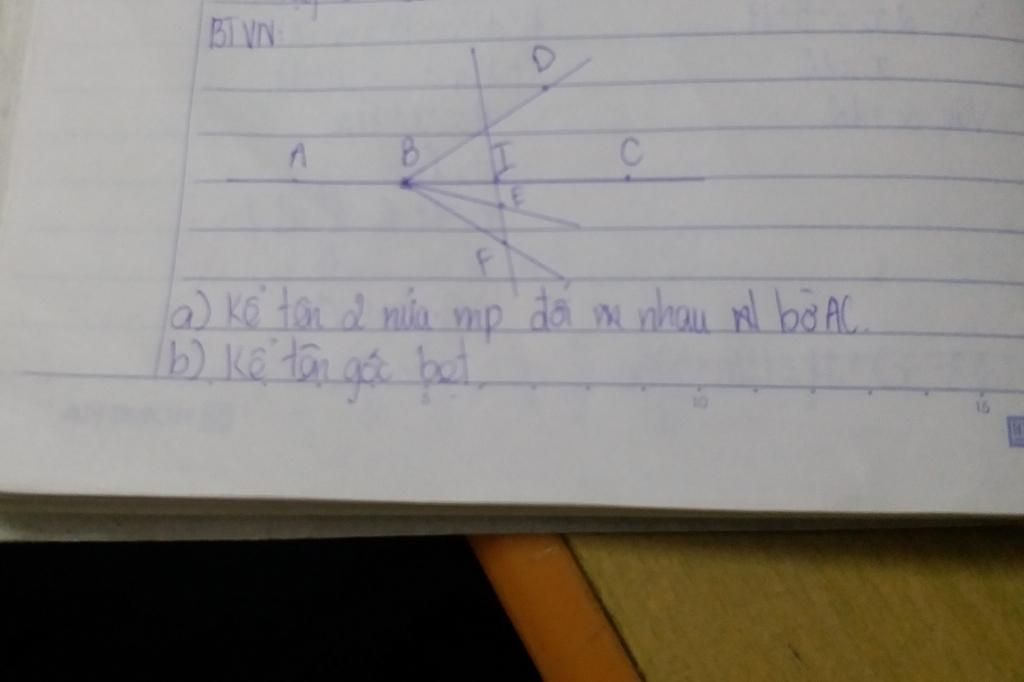 BTVN:
D
A B I C
E
F
a) Kể tên 2 nửa mp đối nhau bờ AC.
b) Kể tên góc bẹt
5 10 15